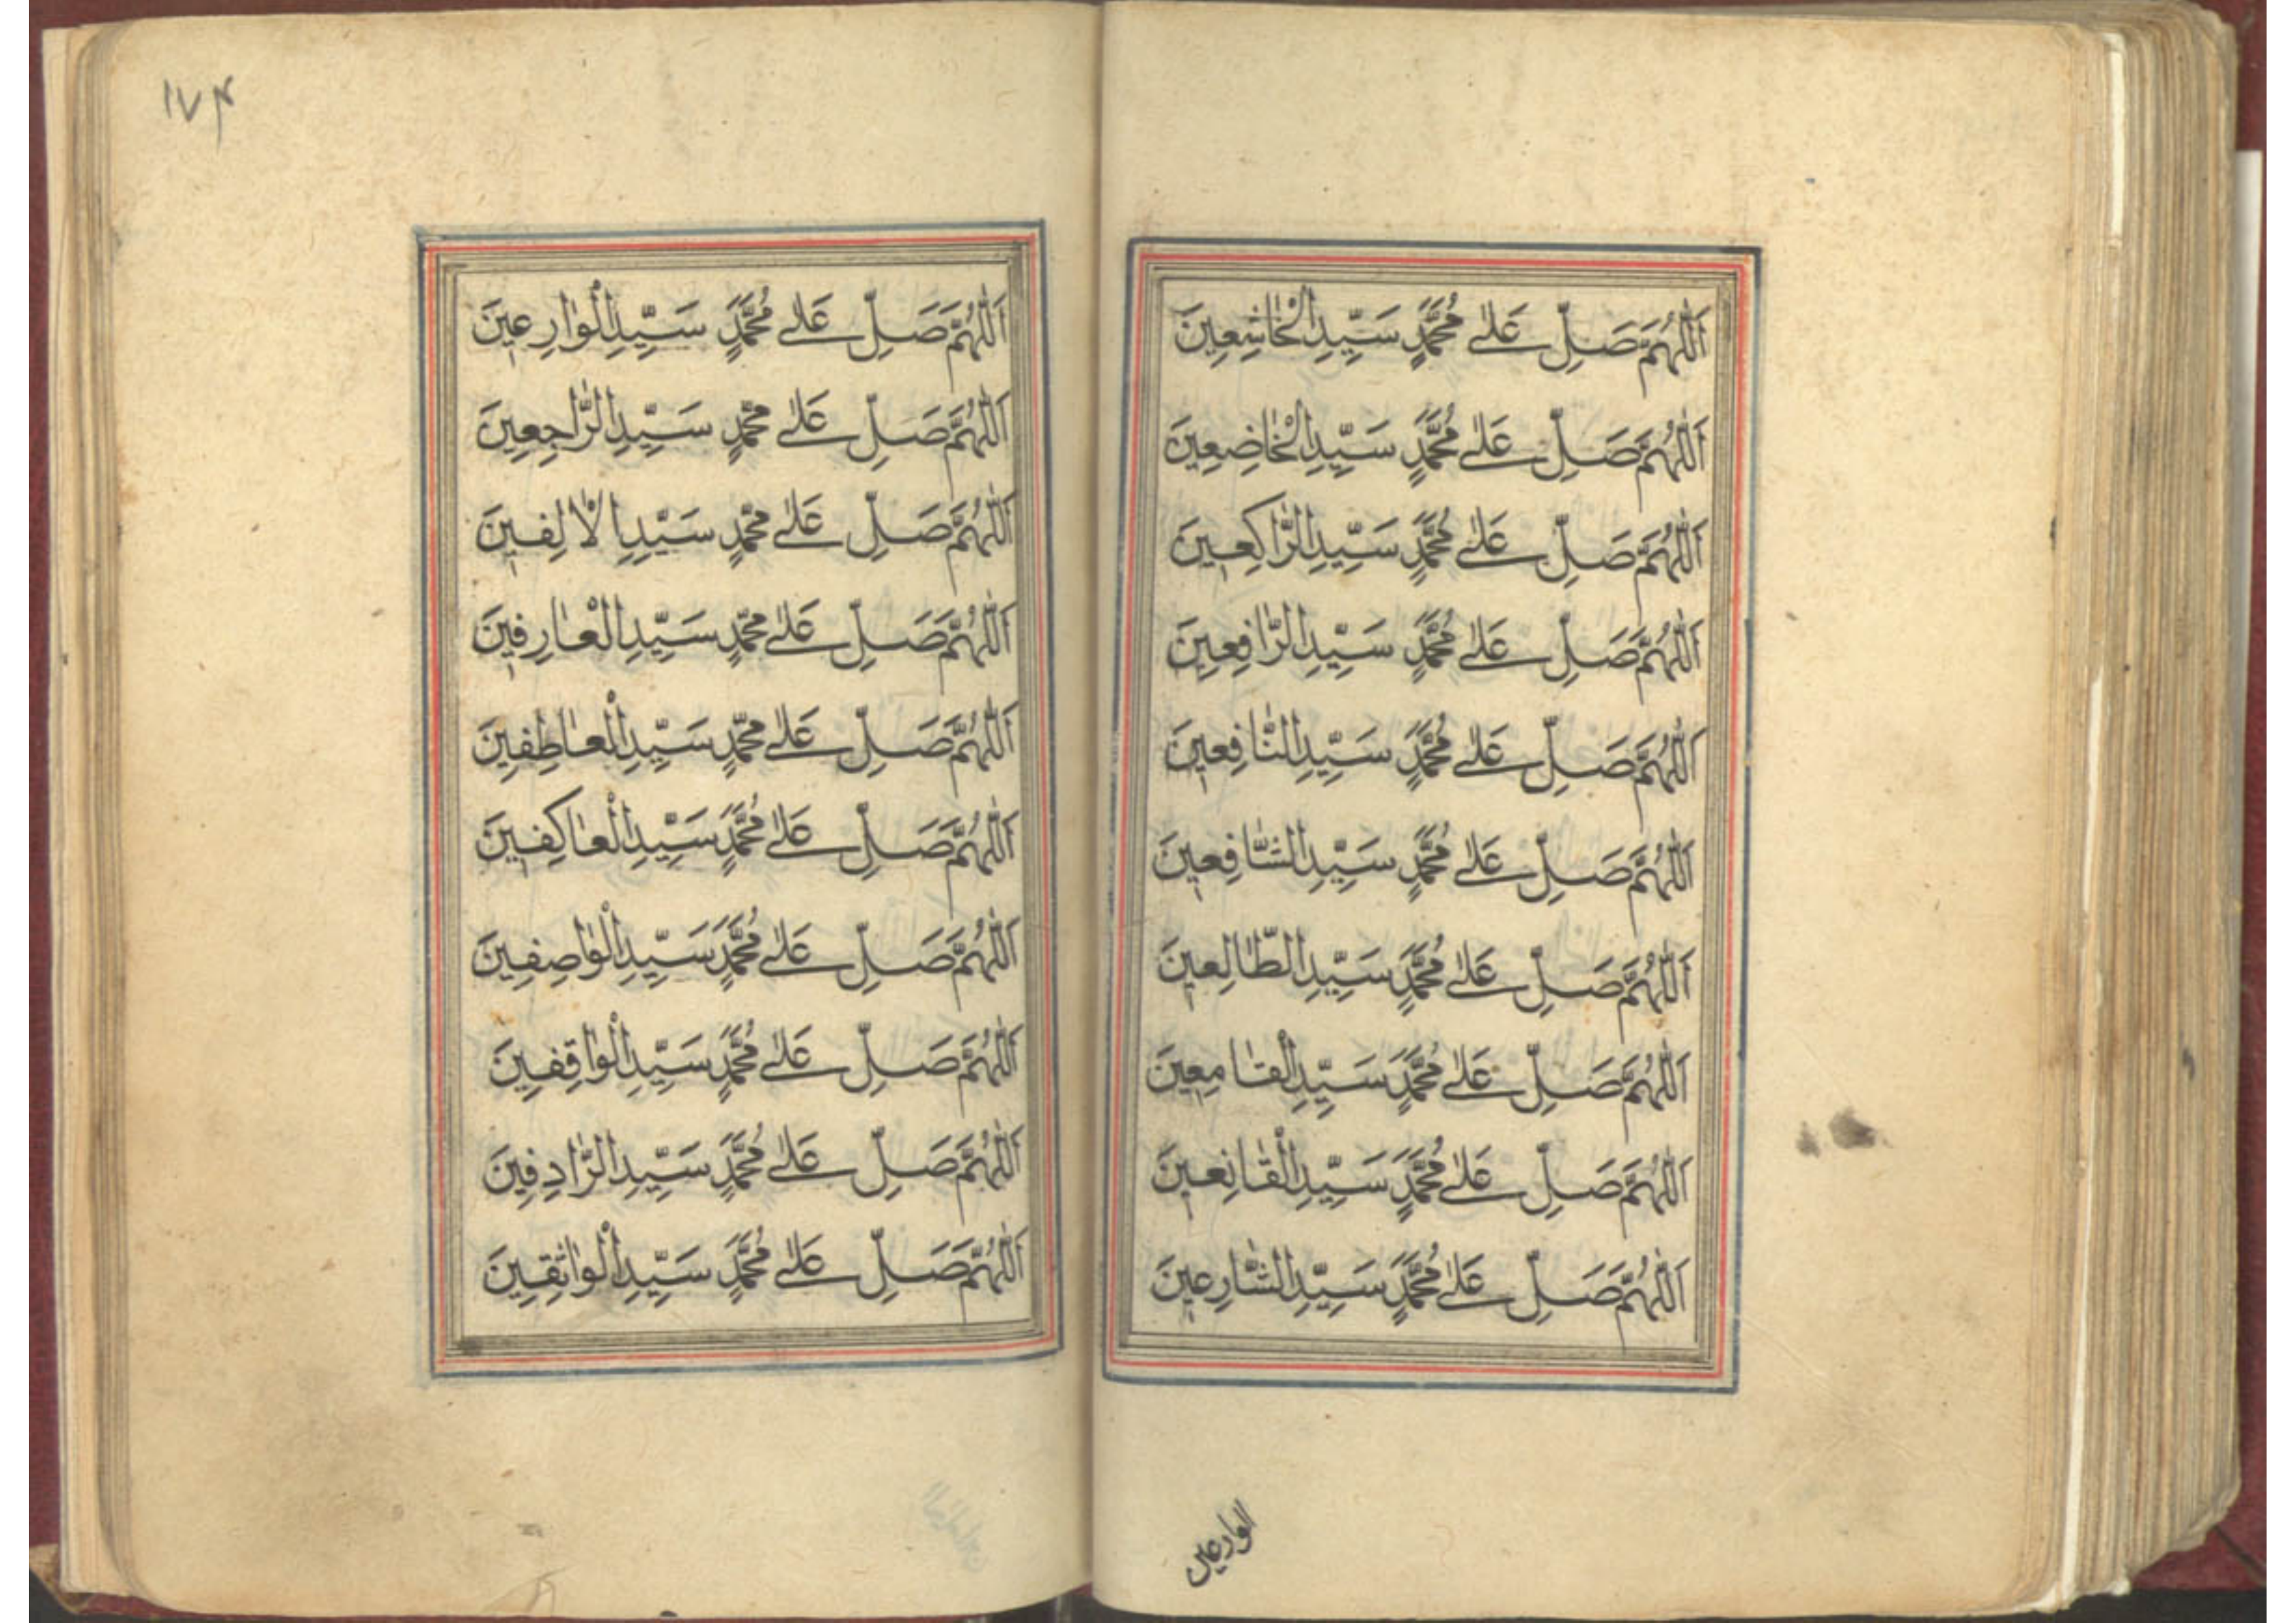 اَللّٰهُمَّ صَلِّ عَلٰى مُحَمَّدٍ سَيِّدِ الْخَاشِعِينَ
اَللّٰهُمَّ صَلِّ عَلٰى مُحَمَّدٍ سَيِّدِ الْخَاضِعِينَ
اَللّٰهُمَّ صَلِّ عَلٰى مُحَمَّدٍ سَيِّدِ الرَّاكِعِينَ
اَللّٰهُمَّ صَلِّ عَلٰى مُحَمَّدٍ سَيِّدِ الرَّافِعِينَ
اَللّٰهُمَّ صَلِّ عَلٰى مُحَمَّدٍ سَيِّدِ النَّافِعِينَ
اَللّٰهُمَّ صَلِّ عَلٰى مُحَمَّدٍ سَيِّدِ الشَّافِعِينَ
اَللّٰهُمَّ صَلِّ عَلٰى مُحَمَّدٍ سَيِّدِ الطَّالِعِينَ
اَللّٰهُمَّ صَلِّ عَلٰى مُحَمَّدٍ سَيِّدِ الْقَامِعِينَ
اَللّٰهُمَّ صَلِّ عَلٰى مُحَمَّدٍ سَيِّدِ الْقَانِعِينَ
اَللّٰهُمَّ صَلِّ عَلٰى مُحَمَّدٍ سَيِّدِ الشَّارِعِينَ
الوارعين
١٧۴
اَللّٰهُمَّ صَلِّ عَلٰى مُحَمَّدٍ سَيِّدِ الْوَارِعِينَ
اَللّٰهُمَّ صَلِّ عَلٰى مُحَمَّدٍ سَيِّدِ الرَّاجِعِينَ
اَللّٰهُمَّ صَلِّ عَلٰى مُحَمَّدٍ سَيِّدِ الْاٰلِفِينَ
اَللّٰهُمَّ صَلِّ عَلٰى مُحَمَّدٍ سَيِّدِ الْعَارِفِينَ
اَللّٰهُمَّ صَلِّ عَلٰى مُحَمَّدٍ سَيِّدِ الْعَاطِفِينَ
اَللّٰهُمَّ صَلِّ عَلٰى مُحَمَّدٍ سَيِّدِ الْعَاكِفِينَ
اَللّٰهُمَّ صَلِّ عَلٰى مُحَمَّدٍ سَيِّدِ الْوَاصِفِينَ
اَللّٰهُمَّ صَلِّ عَلٰى مُحَمَّدٍ سَيِّدِ الْوَاقِفِينَ
اَللّٰهُمَّ صَلِّ عَلٰى مُحَمَّدٍ سَيِّدِ الرَّادِفِينَ
اَللّٰهُمَّ صَلِّ عَلٰى مُحَمَّدٍ سَيِّدِ الْوَاثِقِينَ